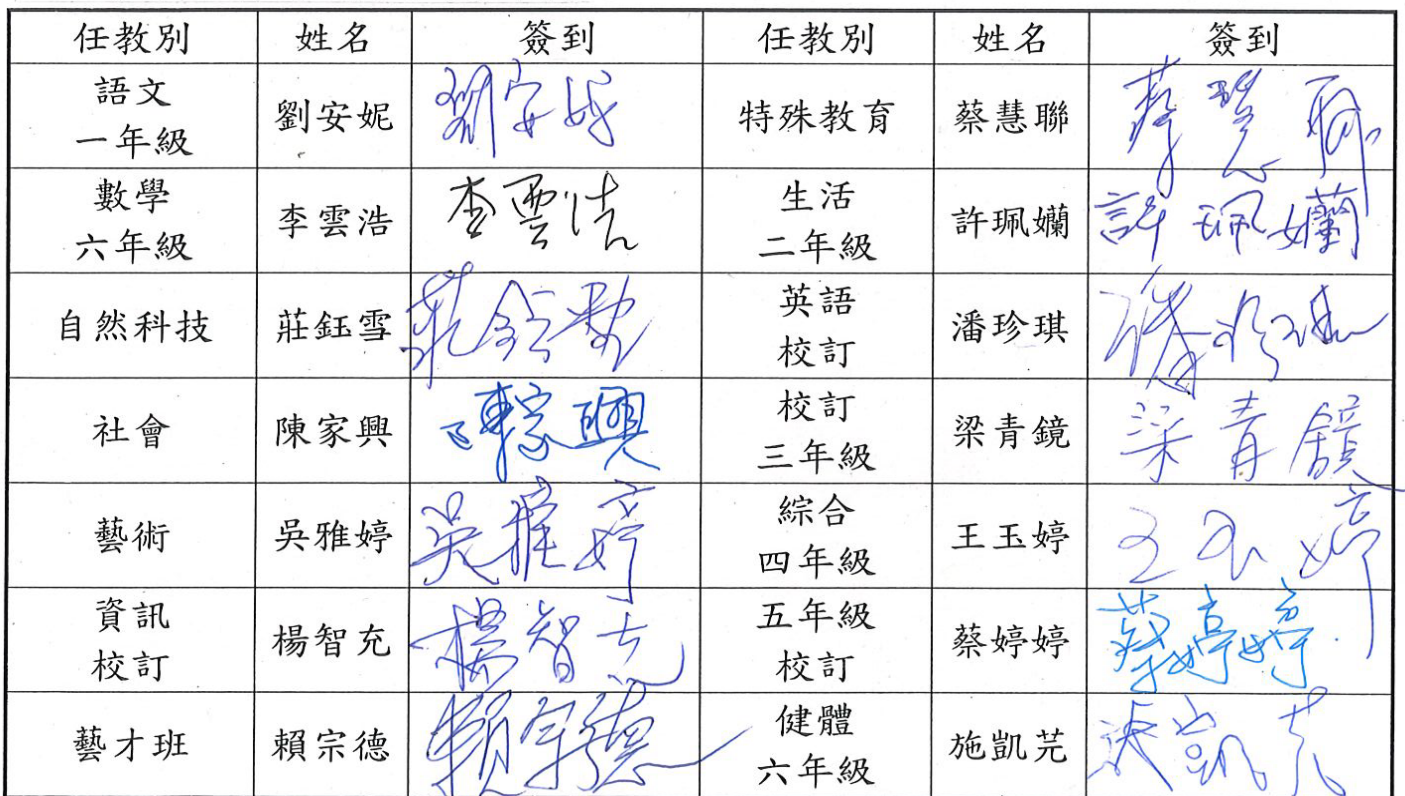 任教別 姓名 簽到 任教別 姓名 簽到
語文
一年級 劉安妮 劉安妮 特殊教育 蔡慧聯 蔡慧聯
數學
六年級 李雲浩 李雲浩 生活
二年級 許珮孄 許珮孄
自然科技 莊鈺雪 莊鈺雪 英語
校訂 潘珍琪 潘珍琪
社會 陳家興 陳家興 校訂
三年級 梁青鏡 梁青鏡
藝術 吳雅婷 吳雅婷 綜合
四年級 王玉婷 王玉婷
資訊
校訂 楊智充 楊智充 五年級
校訂 蔡婷婷 蔡婷婷
藝才班 賴宗德 賴宗德 健體
六年級 施凱芫 施凱芫